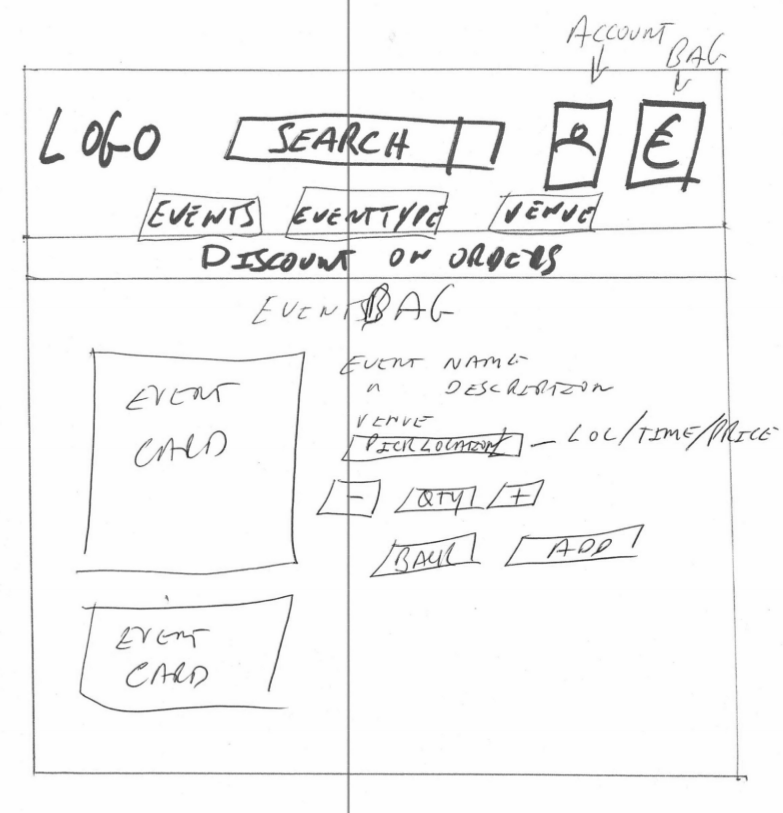 ACCOUNT
BAG
LOGO SEARCH €
EVENTS EVENTTYPE VENUE
DISCOUNT ON ORDERS
EVENTS BAG
EVENT CARD
EVENT NAME
" DESCRIPTION
VENUE
PICK LOCATION – LOC/TIME/PRICE
- QTY +
BACK ADD
EVENT CARD